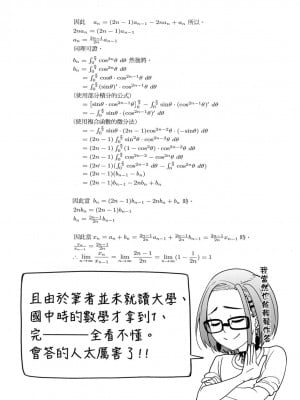 因此　aₙ = (2n − 1)aₙ₋₁ − 2naₙ + aₙ 所以,
2naₙ = (2n − 1)aₙ₋₁
aₙ = (2n−1)/(2n) aₙ₋₁
同理可證,
bₙ = ∫₀^(π/2) cos²ⁿθ dθ 然後將,
bₙ = ∫₀^(π/2) cos²ⁿθ dθ
= ∫₀^(π/2) cosθ · cos²ⁿ⁻¹θ dθ
= ∫₀^(π/2) (sinθ)′ · cos²ⁿ⁻¹θ dθ
(使用部分積分的公式)
= [sinθ · cos²ⁿ⁻¹θ]₀^(π/2) − ∫₀^(π/2) sinθ · (cos²ⁿ⁻¹θ)′ dθ
= − ∫₀^(π/2) sinθ · (cos²ⁿ⁻¹θ)′ dθ
(使用複合函數的微分法)
= − ∫₀^(π/2) sinθ · (2n − 1)cos²ⁿ⁻²θ · (−sinθ) dθ
= (2n − 1) ∫₀^(π/2) sin²θ · cos²ⁿ⁻²θ dθ
= (2n − 1) ∫₀^(π/2) (1 − cos²θ) · cos²ⁿ⁻²θ dθ
= (2n − 1) ∫₀^(π/2) cos²ⁿ⁻²θ − cos²ⁿθ dθ
= (2n − 1)(∫₀^(π/2) cos²ⁿ⁻²θ dθ − ∫₀^(π/2) cos²ⁿθ dθ)
= (2n − 1)(bₙ₋₁ − bₙ)
= (2n − 1)bₙ₋₁ − 2nbₙ + bₙ
因此當 bₙ = (2n − 1)bₙ₋₁ − 2nbₙ + bₙ 時,
2nbₙ = (2n − 1)bₙ₋₁
bₙ = (2n−1)/(2n) bₙ₋₁
因此當 xₙ = aₙ + bₙ = (2n−1)/(2n) aₙ₋₁ + (2n−1)/(2n) bₙ₋₁ = (2n−1)/(2n) xₙ₋₁ 時,
xₙ/xₙ₋₁ = (2n−1)/(2n)
∴ lim(n→∞) xₙ/xₙ₋₁ = lim(n→∞) (2n − 1)/(2n) = lim(n→∞) (1 − 1/(2n)) = 1
且由於筆者並未就讀大學、
國中時的數學才拿到1、
完———全看不懂。
會答的人太厲害了!!
我當然也能輕鬆作答